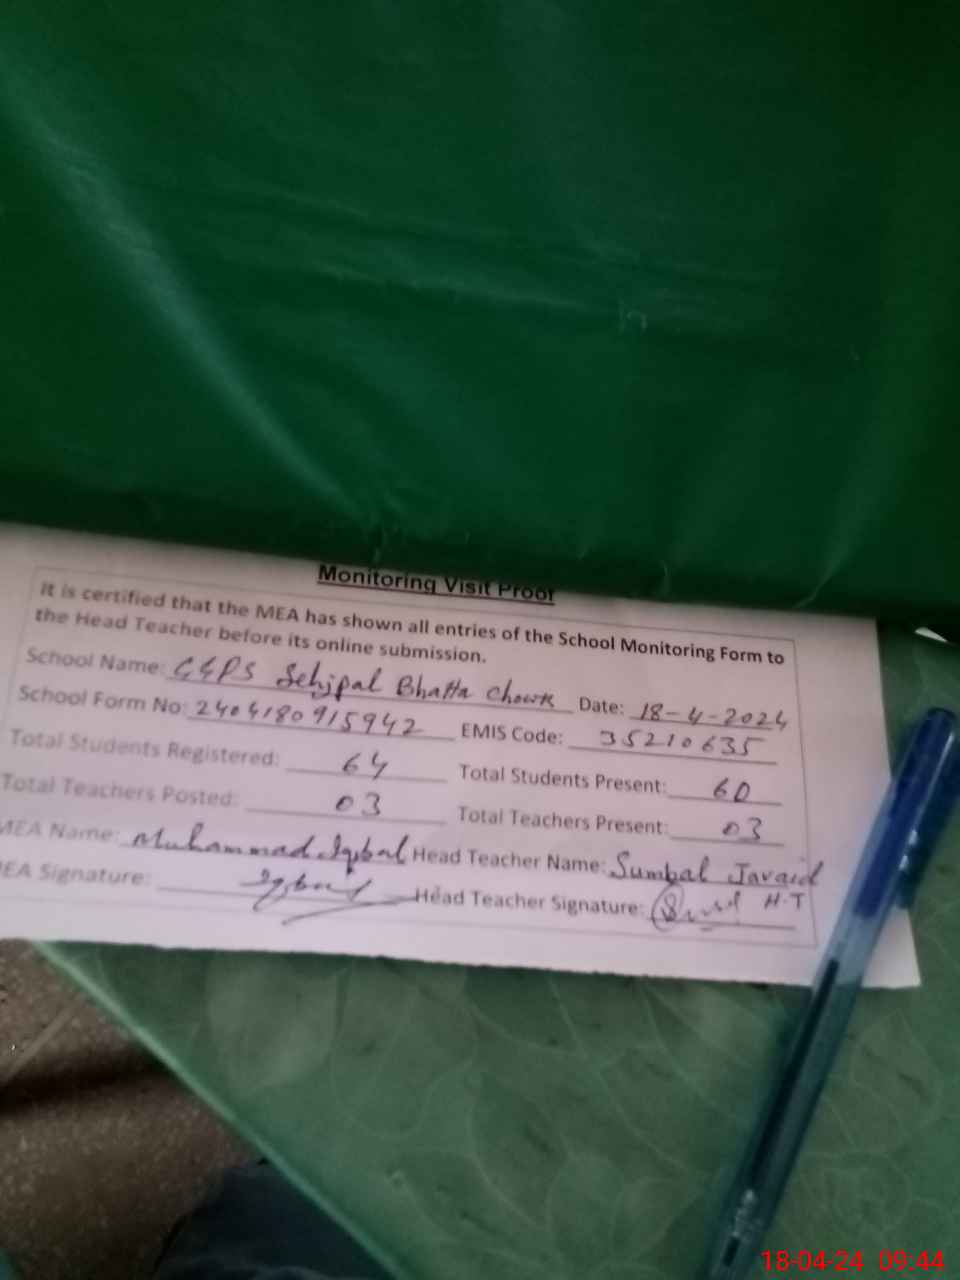 Monitoring Visit Proof
It is certified that the MEA has shown all entries of the School Monitoring Form to
the Head Teacher before its online submission.
School Name: GGPS Sehjpal Bhatta Chowk Date: 18-4-2024
School Form No: 2404180915942 EMIS Code: 35210635
Total Students Registered: 64 Total Students Present: 60
Total Teachers Posted: 03 Total Teachers Present: 03
MEA Name: Muhammad Iqbal Head Teacher Name: Sumbal Javaid
EA Signature: Iqbal Head Teacher Signature: H.T
18-04-24 09:44